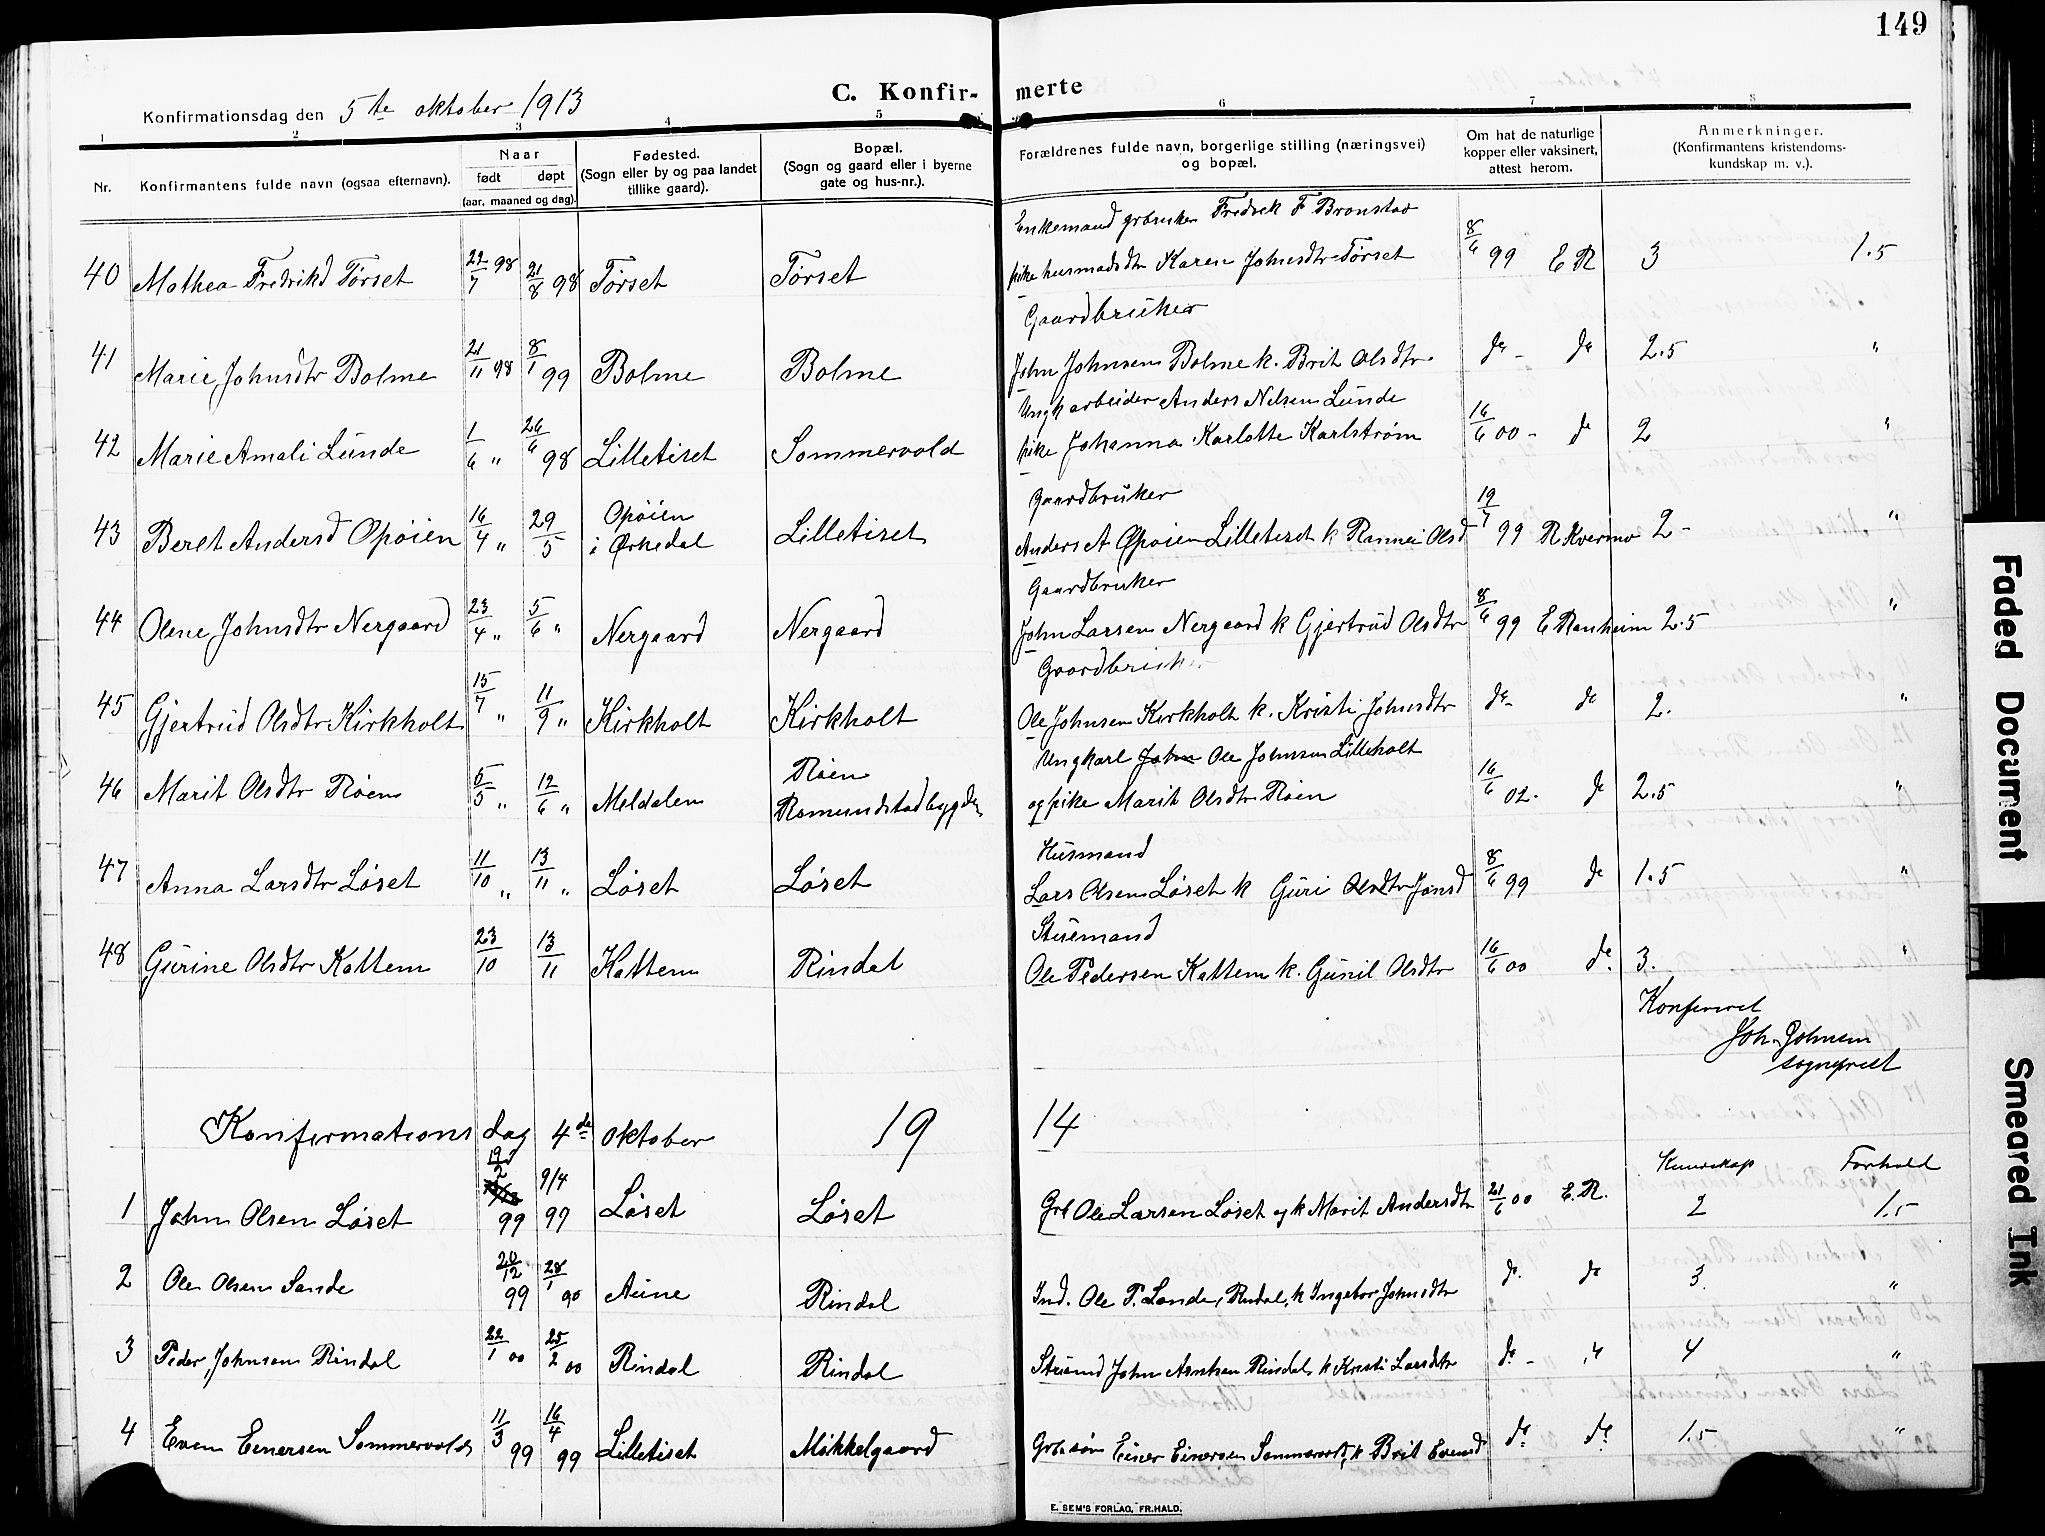 149
Konfirmationsdag den 5te oktober 1913
C. Konfir- merte
1 2 3 4 5 6 7 8
Nr. Konfirmantens fulde navn (ogsaa efternavn). Naar født døpt (aar, maaned og dag). Fødested. (Sogn eller by og paa landet tillike gaard). Bopæl. (Sogn og gaard eller i byerne gate og hus-nr.). Forældrenes fulde navn, borgerlige stilling (næringsvei) og bopæl. Om hat de naturlige kopper eller vaksinert, attest herom. Anmerkninger. (Konfirmantens kristendoms- kundskap m. v.).
Enkemand grbruker Fredrik F Bronstad
40 Mathea Fredrikd Tørset 22/7 98 21/8 98 Tørset Tørset pike husmadsdtr Karen Johnsdtr Tørset 8/6 99 E R 3 1.5
Gaardbruker
41 Marie Johnsdtr Bolme 21/11 98 8/1 99 Bolme Bolme John Johnsen Bolme k. Brit Olsdtr do - do 2.5 "
Ungk arbeider Anders Nilsen Lunde
42 Marie Amali Lunde 1/6 " 26/6 98 Lilletiset Sommervold pike Johanna Karlotte Karlstrøm 16/6 00 - do 2 "
Gaardbruker
43 Beret Andersd Opøien 16/4 " 29/5 Opøien i Ørkedal Lilletiset Anders A Opøien Lilletiset k Rannei Olsd 19/7 99 R Kvernmo 2 - "
Gaardbruker
44 Olene Johnsdtr Nergaard 23/4 " 5/6 " Nergaard Nergaard John Larsen Nergaard k Gjertrud Olsdtr 8/6 99 E Ranheim 2.5 "
Gaardbruker
45 Gjertrud Olsdtr Kirkholt 15/7 " 11/9 " Kirkholt Kirkholt Ole Johnsen Kirkholt k. Kristi Johnsdtr do - do 2. "
Ungkarl John Ole Johnsen Lilleholt
46 Marit Olsdtr Røen 5/5 " 12/6 " Meldalen Røen Romundstadbygden og pike Marit Olsdtr Røen 16/6 02. do 2.5 "
Husmand
47 Anna Larsdtr Løset 11/10 " 13/11 " Løset Løset Lars Olsen Løset k Guri Olsdtr Jonsd 8/6 99 do 1.5 "
Stuemand
48 Gurine Olsdtr Kattem 23/10 13/11 Kattem Rindal Ole Pedersen Kattem k. Gunil Olsdtr 16/6 00 do. 3. "
Konfereret
Joh. Johnsen
sogneprest
Konfirmations dag 4de oktober 1914
Kunnskap Forhold
1 John Olsen Løset 19/2 99 9/4 99 Løset Løset Grb Ole Larsen Løset og k Marit Andersdtr 21/6 00 E. R. 2 1.5
2 Ole Olsen Sande 20/12 99 28/1 90 Aune Rindal Ind. Ole P. Sande, Rindal, k Ingebor Johnsdtr do. do 3 "
3 Peder Johnsen Rindal 22/1 00 25/2 00 Rindal Rindal Stuemd John Arntsen Rindal, k Kristi Larsdtr do - " 4 "
4 Even Einersen Sommervold 11/3 99 16/4 99 Lilletiset Mikkelgaard Grb.søn Einer Einersen Sommervold, k Brit Evensd do do 1.5 "
E. SEM'S FORLAG, FR.HALD.
Faded Document
Smeared Ink